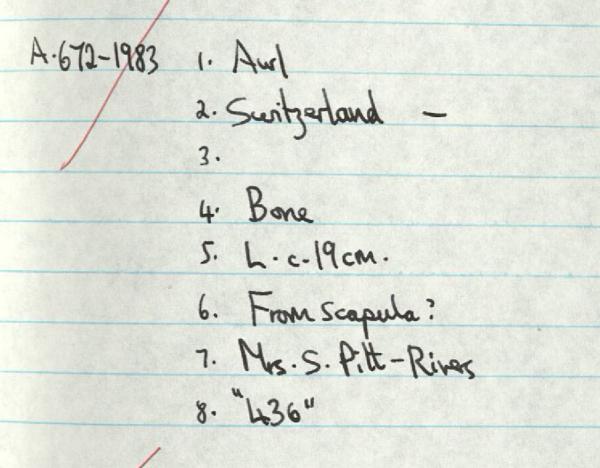 A.672-1983 1. Awl
2. Switzerland —
3.
4. Bone
5. L. c. 19 cm.
6. From scapula?
7. Mrs. S. Pitt-Rivers
8. "436"